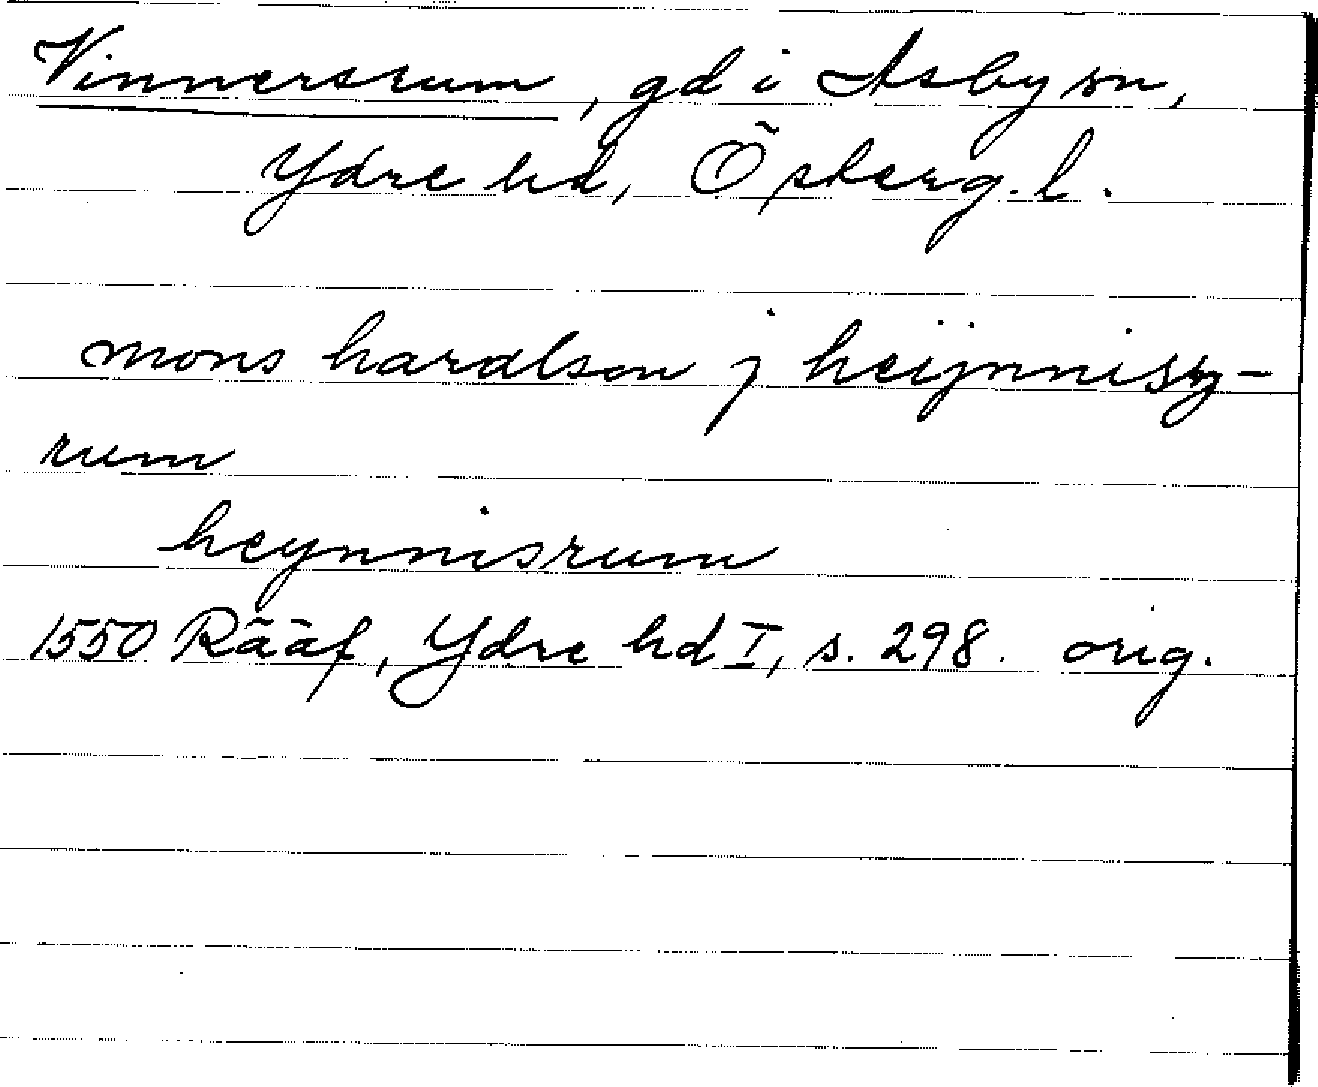 Vinnersrum, gd i Asby sn,
Ydre hd, Östergl.
mons haralson j heijnnisz-
rum
heynnisrum
1550 Rääf, Ydre hd I, s. 298. orig.